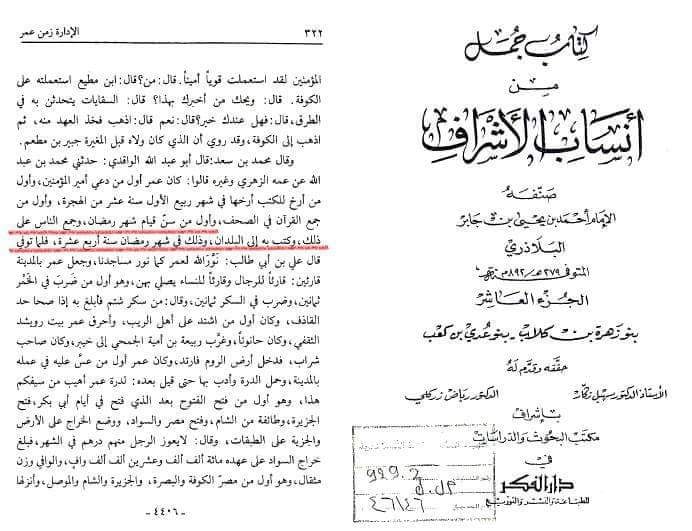 كتاب جمل
من
أنساب الأشراف
صنفه
الإمام أحمد بن يحيى بن جابر
البلاذري
المتوفى ٢٧٩هـ - ٨٩٢م
الجزء العاشر
بنو زهرة بن كلاب - بنو عدي بن كعب
حققه وقدم له
الأستاذ الدكتور سهيل زكار الدكتور رياض زركلي
بإشراف
مكتب البحوث والدراسات
في
دار الفكر
للطباعة والنشر والتوزيع
929.2
٤٦١٤٦
٣٢٢ الإدارة زمن عمر
المؤمنين لقد استعملت قوياً أميناً. قال: من؟ قال: ابن مطيع استعملته على
الكوفة. قال: ويحك من أخبرك بهذا؟ قال: السقايات يتحدثن به في
الطرق، قال: فهل عندك خير؟ قال: نعم قال: اذهب فخذ العهد منه، ثم
اذهب إلى الكوفة، وقد روي أن الذي كان ولاه قبل المغيرة جبير بن مطعم.
وقال محمد بن سعد: قال أبو عبد الله الواقدي: حدثني محمد بن عبد
الله عن عمه الزهري وغيره قالوا: كان عمر أول من دعي أمير المؤمنين، وأول
من أرخ للكتب أرخها في شهر ربيع الأول سنة عشر من الهجرة، وأول من
جمع القرآن في الصحف، وأول من سنّ قيام شهر رمضان، وجمع الناس على
ذلك، وكتب به إلى البلدان، وذلك في شهر رمضان سنة أربع عشرة، فلما توفي
قال علي بن أبي طالب: نوّر الله لعمر كما نور مساجدنا، وجعل عمر بالمدينة
قارئين: قارئاً للرجال وقارئاً للنساء يصلي بهن، وهو أول من ضرب في الخمر
ثمانين، وضرب في السكر ثمانين، قال: من سكر شتم فأبلغ به إذا صحا حد
القاذف، وكان أول من اشتد على أهل الريب، وأحرق عمر بيت رويشد
الثقفي، وكان حانوتاً، وغرّب ربيعة بن أمية الجمحي إلى خيبر، وكان صاحب
شراب، فدخل أرض الروم فارتد، وكان أول من عسّ عليه في عمله
بالمدينة، وحمل الدرة وأدب بها حتى قيل بعده: لدرة عمر أهيب من سيفكم
هذا، وهو أول من فتح الفتوح بعد الذي فتح في أيام أبي بكر، فتح
الجزيرة، وطائفة من الشام، وفتح مصر والسواد، ووضع الخراج على الأرض
والجزية على الطبقات، وقال: لا يعوز الرجل منهم درهم في الشهر، فبلغ
خراج السواد على عهده مائة ألف ألف وعشرين ألف ألف واف، والوافي وزن
مثقال، وهو أول من مصّر الكوفة والبصرة، والجزيرة والشام والموصل، وأنزلها
- ٤٤٠٦ -